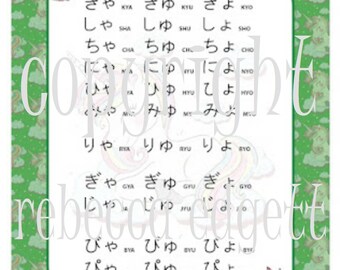 きゃ KYA きゅ KYU きょ KYO
しゃ SHA しゅ SHU しょ SHO
ちゃ CHA ちゅ CHU ちょ CHO
にゃ NYA にゅ NYU にょ NYO
ひゃ ひゅ HYU ひょ HYO
copyright
みゃ みゅ みょ
りゃ RYA りゅ RYU りょ RYO
ぎゃ GYA ぎゅ GYU ぎょ GYO
rebecca
じゃ じゅ じょ
びゃ BYA びゅ BYU びょ BYO
ぴゃ ぴゅ ぴょ